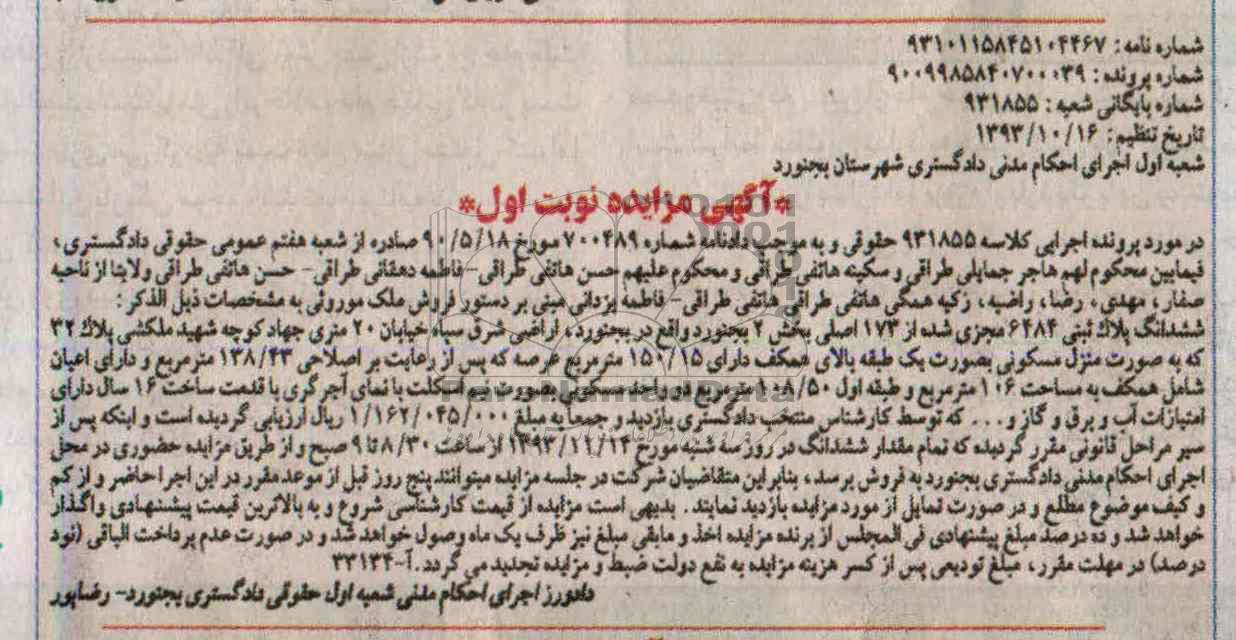 شماره نامه: ۹۳۱۰۱۱۵۸۴۵۱۰۴۴۶۷
شماره پرونده: ۹۰۰۹۹۸۵۸۴۰۷۰۰۰۳۹
شماره بایگانی شعبه: ۹۳۱۸۵۵
تاریخ تنظیم: ۱۳۹۳/۱۰/۱۶
شعبه اول اجرای احکام مدنی دادگستری شهرستان بجنورد
*آگهی مزایده نوبت اول*
در مورد پرونده اجرایی کلاسه ۹۳۱۸۵۵ حقوقی و به موجب دادنامه شماره ۷۰۰۴۸۹ مورخ ۹۰/۵/۱۸ صادره از شعبه هفتم عمومی حقوقی دادگستری،
فیمابین محکوم لهم هاجر جمایلی طراقی و سکینه هاتفی طراقی و محکوم علیهم حسن هاتفی طراقی-فاطمه دهقانی طراقی- حسن هاتفی طراقی ولایتا از ناحیه
صغار، مهدی، رضا، راضیه، زکیه همگی هاتفی طراقی هاتفی طراقی- فاطمه یزدانی مبنی بر دستور فروش ملک موروثی به مشخصات ذیل الذکر:
ششدانگ پلاک ثبتی ۶۴۸۴ مجزی شده از ۱۷۳ اصلی بخش ۲ بجنورد واقع در بجنورد، اراضی شرق سپاه خیابان ۲۰ متری جهاد کوچه شهید ملکشی پلاک ۳۲
که به صورت منزل مسکونی بصورت یک طبقه بالای همکف دارای ۱۵۰/۱۵ مترمربع عرصه که پس از رعایت بر اصلاحی ۱۳۸/۴۳ مترمربع و دارای اعیان
شامل همکف به مساحت ۱۰۶ مترمربع و طبقه اول ۱۰۸/۵۰ مترمربع در دو واحد مسکونی بصورت نیمه اسکلت با نمای آجر گری با قدمت ساخت ۱۶ سال دارای
امتیازات آب و برق و گاز و... که توسط کارشناس منتخب دادگستری بازدید و جمعاً به مبلغ ۱/۱۶۲/۰۴۵/۰۰۰ ریال ارزیابی گردیده است و اینکه پس از
سیر مراحل قانونی مقرر گردیده که تمام مقدار ششدانگ در روز سه شنبه مورخ ۱۳۹۳/۱۱/۱۴ از ساعت ۸/۳۰ تا ۹ صبح و از طریق مزایده حضوری در محل
اجرای احکام مدنی دادگستری بجنورد به فروش برسد، بنابراین متقاضیان شرکت در جلسه مزایده میتوانند پنج روز قبل از موعد مقرر در این اجرا حاضر و از کم
و کیف موضوع مطلع و در صورت تمایل از مورد مزایده بازدید نمایند. بدیهی است مزایده از قیمت کارشناسی شروع و به بالاترین قیمت پیشنهادی واگذار
خواهد شد و ده درصد مبلغ پیشنهادی فی المجلس از برنده مزایده اخذ و مابقی مبلغ نیز ظرف یک ماه وصول خواهد شد و در صورت عدم پرداخت الباقی (نود
درصد) در مهلت مقرر، مبلغ تودیعی پس از کسر هزینه مزایده به نفع دولت ضبط و مزایده تجدید می گردد. آ-۳۳۱۳۴
دادورز اجرای احکام مدنی شعبه اول حقوقی دادگستری بجنورد- رضاپور